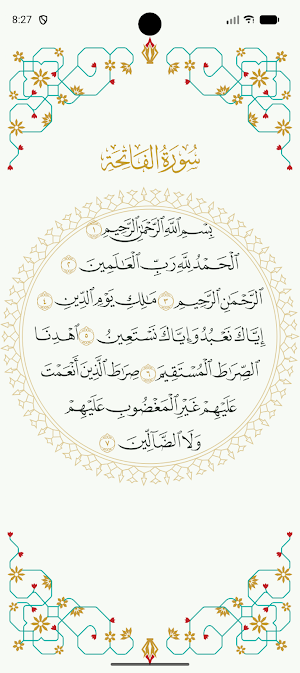 8:27
سُورَةُ الْفَاتِحَةِ
بِسْمِ اللَّهِ الرَّحْمَٰنِ الرَّحِيمِ ١
الْحَمْدُ لِلَّهِ رَبِّ الْعَالَمِينَ ٢
الرَّحْمَٰنِ الرَّحِيمِ ٣ مَالِكِ يَوْمِ الدِّينِ ٤
إِيَّاكَ نَعْبُدُ وَإِيَّاكَ نَسْتَعِينُ ٥ اهْدِنَا
الصِّرَاطَ الْمُسْتَقِيمَ ٦ صِرَاطَ الَّذِينَ أَنْعَمْتَ
عَلَيْهِمْ غَيْرِ الْمَغْضُوبِ عَلَيْهِمْ
وَلَا الضَّالِّينَ ٧